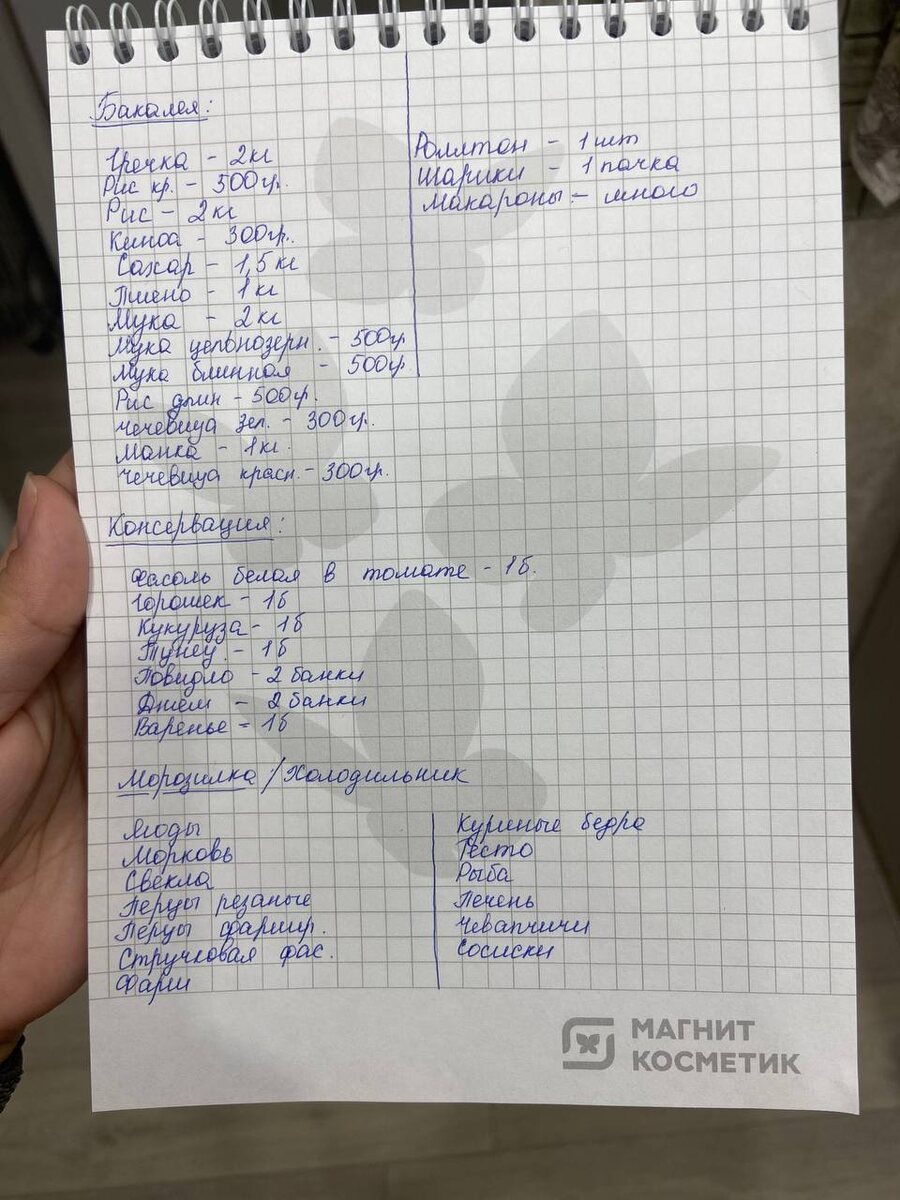 Бакалея:
Гречка - 2кг
Рис кр. - 500гр.
Рис - 2кг
Киноа - 300гр.
Сахар - 1,5кг
Пшено - 1кг
Мука - 2кг
Мука цельнозерн. - 500гр
Мука блинная - 500гр
Рис длин - 500гр.
Чечевица зел. - 300гр.
Манка - 1кг.
Чечевица красн. - 300гр.
Роллтон - 1шт
Шарики - 1пачка
Макароны - много
Консервация:
Фасоль белая в томате - 1б.
Горошек - 1б
Кукуруза - 1б
Тунец - 1б
Повидло - 2 банки
Джем - 2 банки
Варенье - 1б
Морозилка / Холодильник
Ягоды
Морковь
Свекла
Перцы резаные
Перцы фаршир.
Стручковая фас.
Фарш
Куриные бедра
Тесто
Рыба
Печень
Чевапчичи
Сосиски
МАГНИТ
КОСМЕТИК